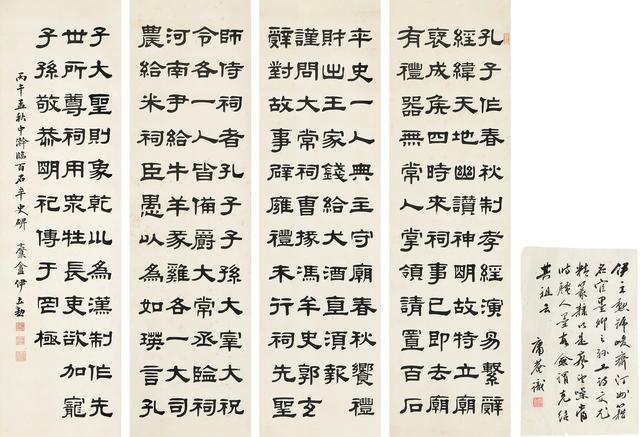 孔子作春秋制孝經演易繫辭
經緯天地幽讚神明故特立廟
褒成侯四時來祠事已即去廟
有禮器無常人掌領請置百石
卒史一人典主守廟春秋饗禮
財出王家錢給大酒直須報
謹問大常祠曹掾馮牟史郭玄
辭對故事辟廱禮未行祠先聖
師侍祠者孔子子孫大宰大祝
令各一人皆備爵大常丞臨祠
河南尹給牛羊豕雞各一大司
農給米祠臣愚以為如瑛言孔
子大聖則象乾坤為漢制作先
世所尊祠用眾牲長吏欲加寵
子孫敬恭明祀傳于罔極
丙午孟秋中澣臨百石卒史碑 盦伊立勳
伊立勳號峻齋汀州籍
名宦墨卿之孫工詩文尤
精篆隸以是
時騷人墨客僉謂克紹
其祖云
庸菴識